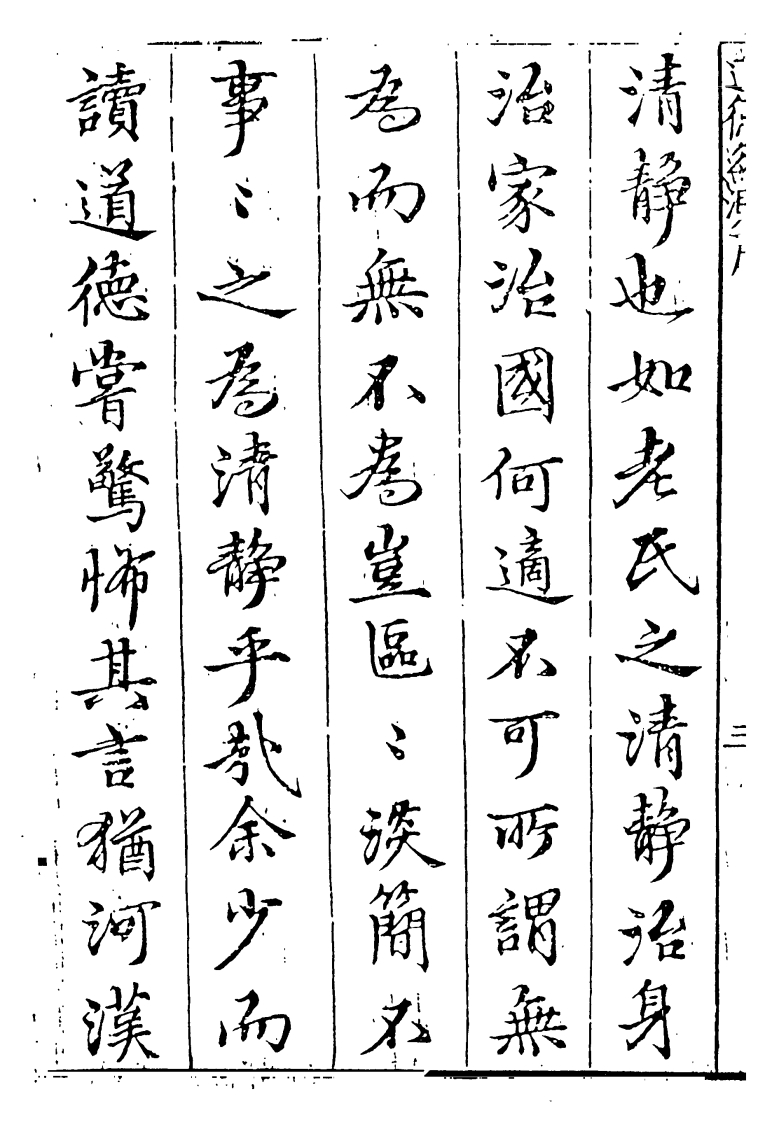 三
清静也如老氏之清静治身
治家治國何適不可所謂無
為而無不為豈區〻淡簡不
事〻之為清静乎哉余少而
讀道德嘗驚怖其言猶河漢